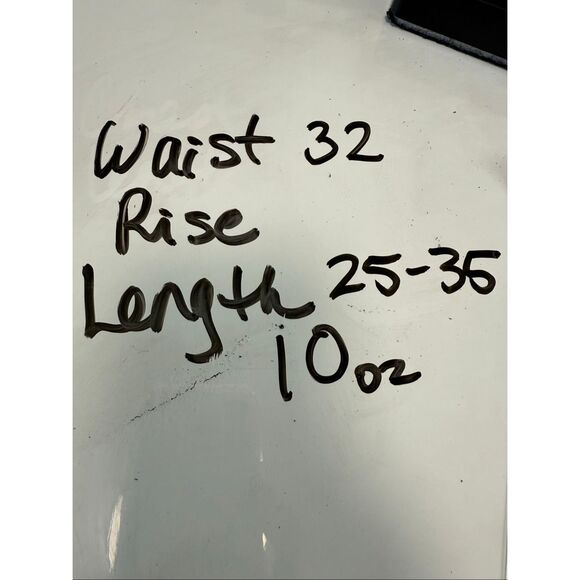 Waist 32
Rise
Length 25-36
10oz